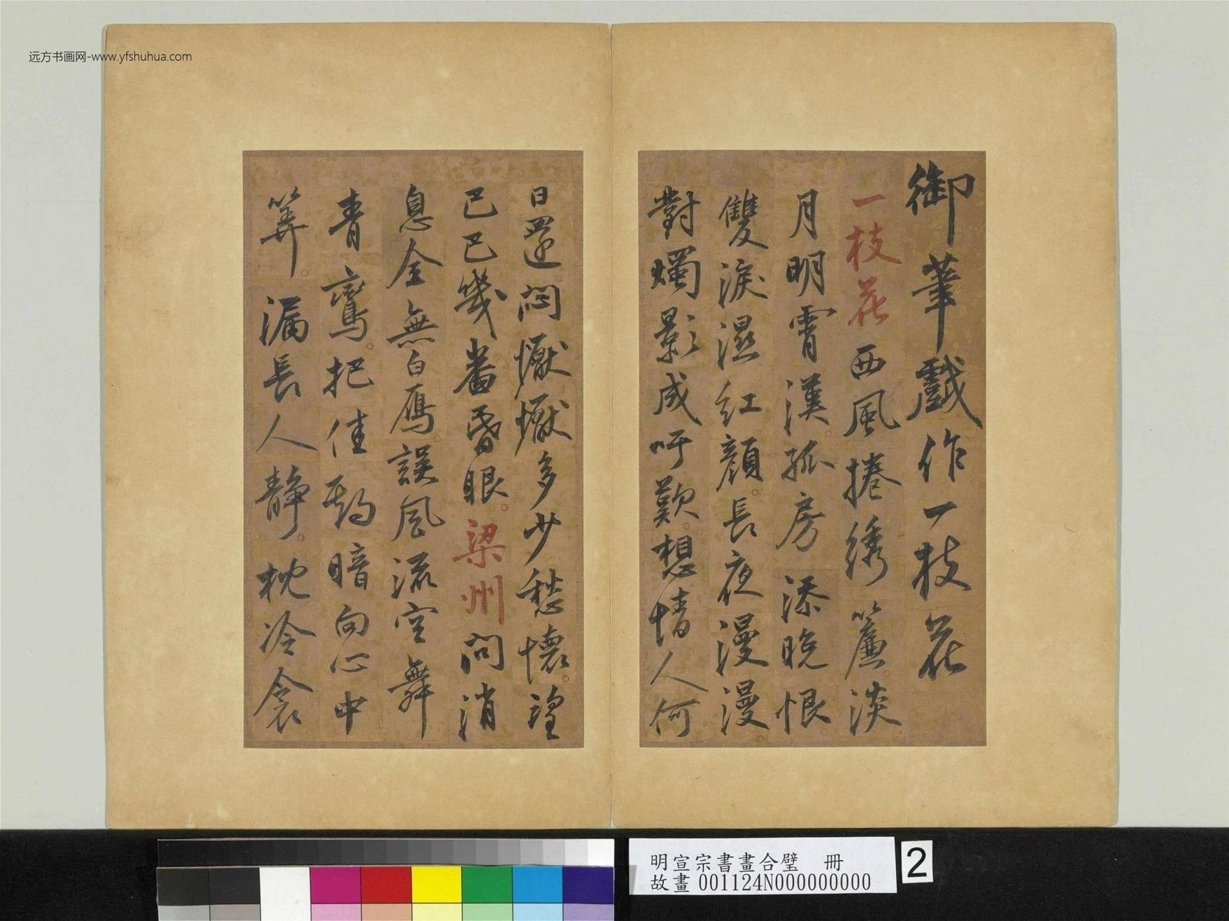 远方书画网-www.yfshuhua.com
御筆戲作一枝花
一枝花西風捲繡簾淡
月明霄漢孤房添晚恨
雙淚濕紅顏長夜漫漫
對燭影成吁歎想情人何
日還悶懨懨多少愁懷望
巴巴幾番昏眼梁州問消
息全無白鴈誤風流空舞
青鸞把佳期暗向心中
筭漏長人靜枕冷衾
明宣宗書畫合璧 冊
故畫 001124N000000000
2